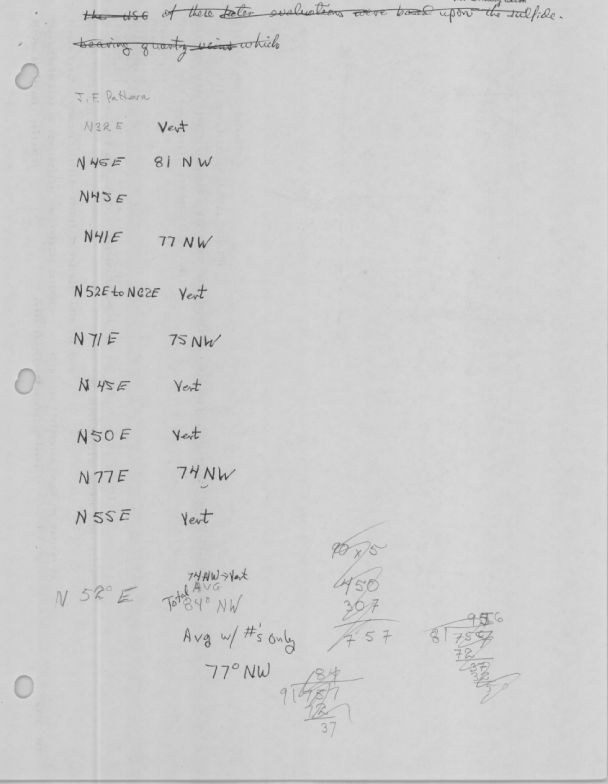 the use of these later evaluations were based upon the sulfide-
bearing quartz veins which
J. F. Pathera
N32E Vert
N45E 81 NW
N45E
N41E 77 NW
N52E to N62E Vert
N 71 E 75 NW
N 45E Vert
N50 E Vert
N77E 74 NW
N 55E Vert
74NW→Vert
N 52° E Total AVG
84° NW
Avg w/ #'s only
77° NW
90 x 5
450
307
757
84
9|757
72
37
8|757
72
37